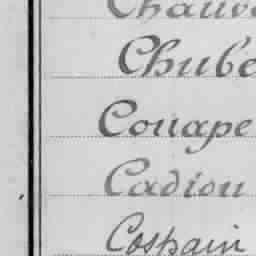 Chauv
Chube
Couape
Cadiou
Cospain